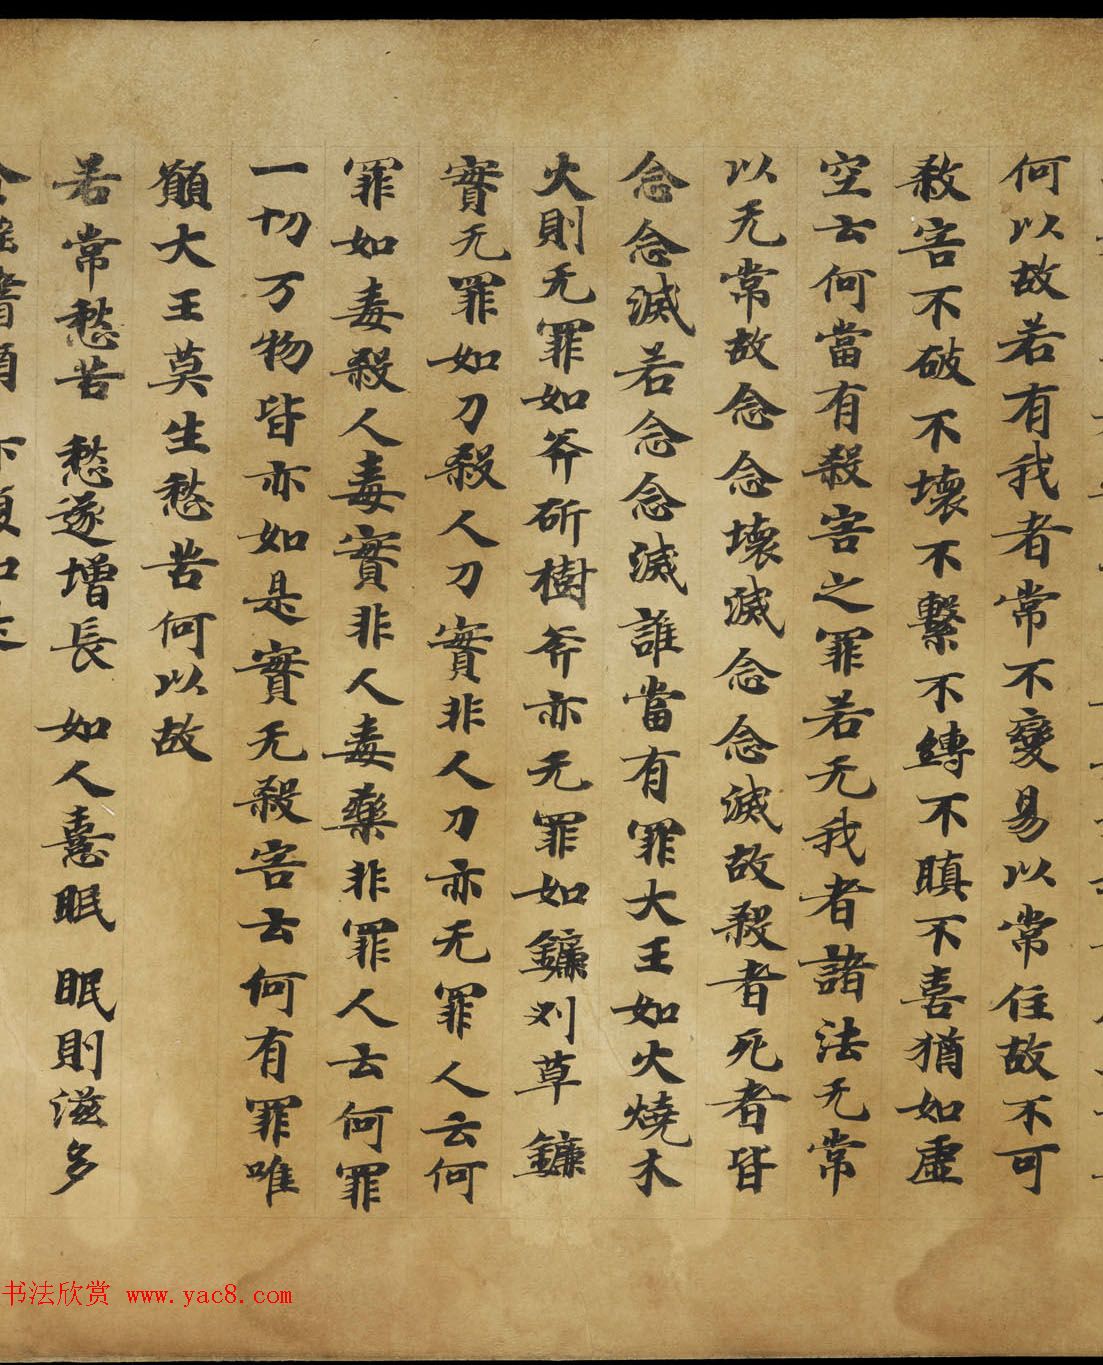 何以故若有我者常不變易以常住故不可
煞害不破不壞不繫不縛不瞋不喜猶如虛
空云何當有殺害之罪若无我者諸法无常
以无常故念念壞滅念念滅故殺者死者皆
念念滅若念念滅誰當有罪大王如火燒木
火則无罪如斧斫樹斧亦无罪如鐮刈草鐮
實无罪如刀殺人刀實非人刀亦无罪人云何
罪如毒殺人毒實非人毒藥非罪人云何罪
一切万物皆亦如是實无殺害云何有罪唯
願大王莫生愁苦何以故
若常愁苦 愁遂增長 如人憙眠 眠則滋多
书法欣赏 www.yac8.com